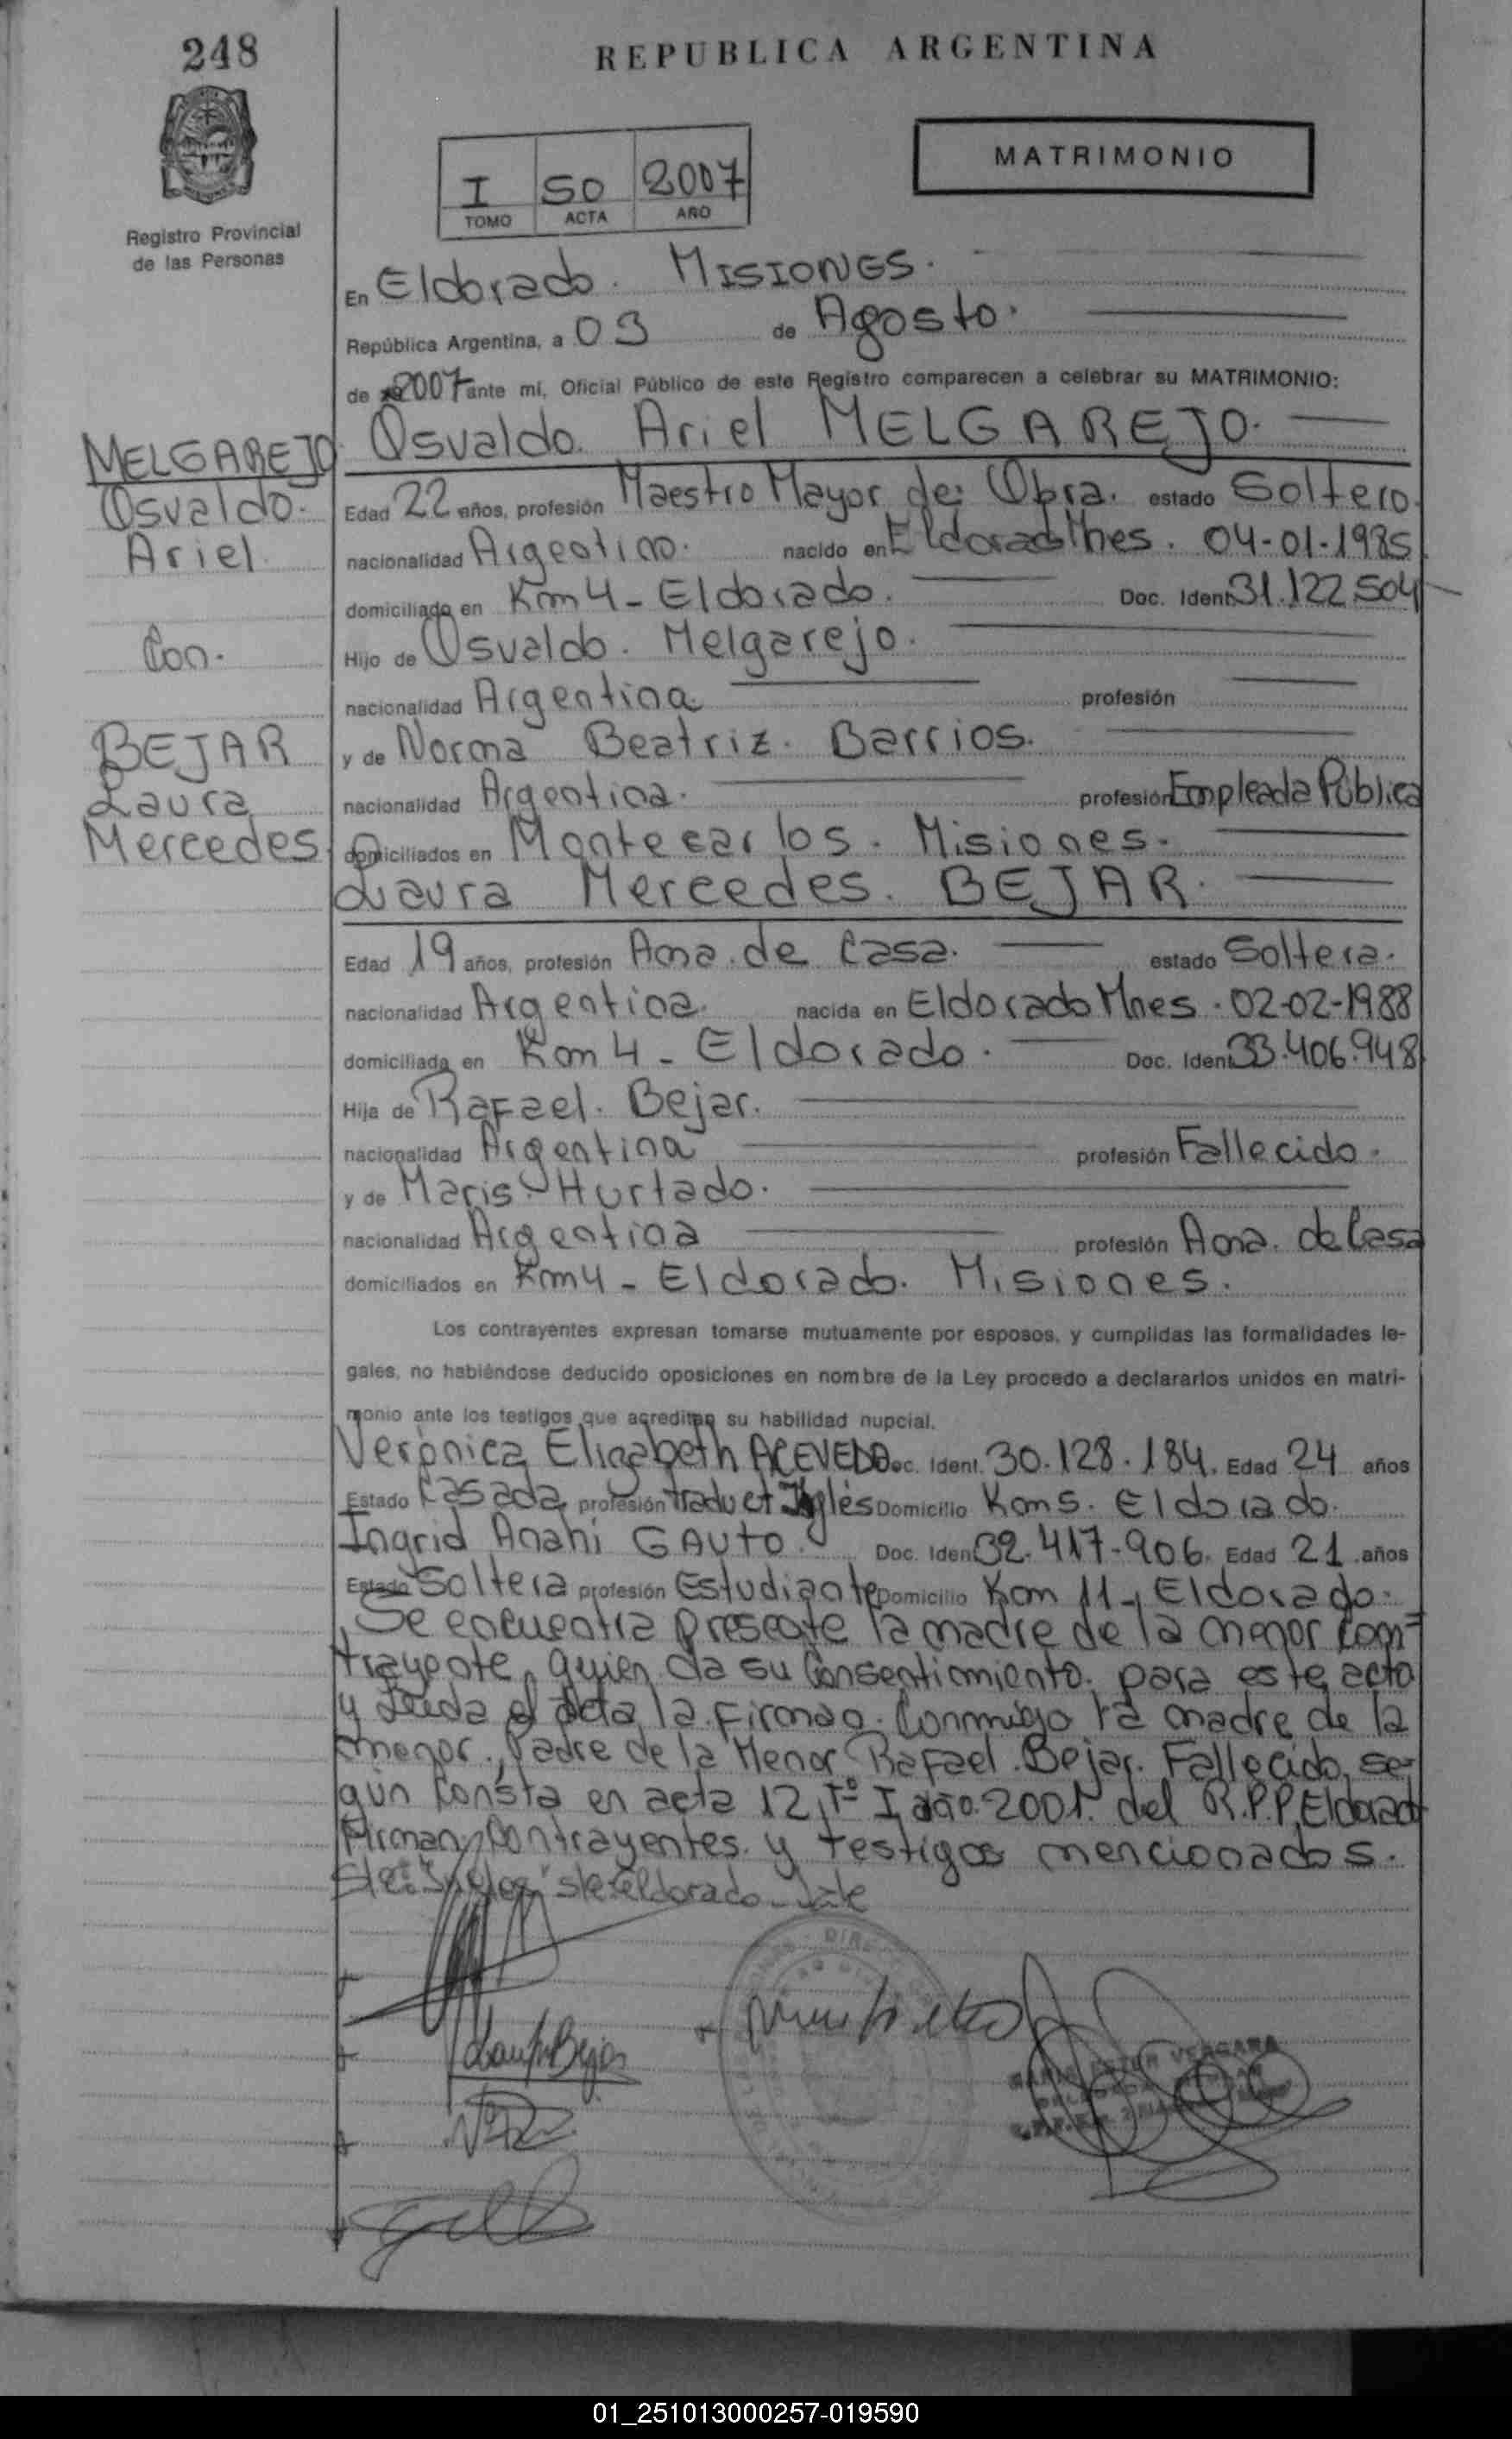 248
REPUBLICA ARGENTINA
Registro Provincial
de las Personas
I 50 2007
TOMO ACTA AÑO
MATRIMONIO
En Eldorado. Misiones.
República Argentina, a 03 de Agosto.
de 2007 ante mí, Oficial Público de este Registro comparecen a celebrar su MATRIMONIO:
MELGAREJO
Osvaldo.
Ariel.
Con.
BEJAR
Laura
Mercedes
Osvaldo. Ariel MELGAREJO.
Edad 22 años, profesión Maestro Mayor de: Obra. estado Soltero.
nacionalidad Argentino. nacido en Eldorado Mnes. 04-01-1985
domiciliado en Km 4 - Eldorado. Doc. Ident. 31.122.504
Hijo de Osvaldo. Melgarejo.
nacionalidad Argentina profesión
y de Norma Beatriz. Barrios.
nacionalidad Argentina. profesión Empleada Pública
domiciliados en Montecarlos. Misiones.
Laura Mercedes. BEJAR.
Edad 19 años, profesión Ama. de Casa. estado Soltera.
nacionalidad Argentina. nacida en Eldorado Mnes. 02-02-1988
domiciliada en Km 4 - Eldorado. Doc. Ident. 33.406.948
Hija de Rafael. Bejar.
nacionalidad Argentina profesión Fallecido.
y de Maris Hurtado.
nacionalidad Argentina profesión Ama. de Casa
domiciliados en Km 4 - Eldorado. Misiones.
Los contrayentes expresan tomarse mutuamente por esposos, y cumplidas las formalidades le-
gales, no habiéndose deducido oposiciones en nombre de la Ley procedo a declararlos unidos en matri-
monio ante los testigos que acreditan su habilidad nupcial.
Verónica Elizabeth ACEVEDO Doc. Ident. 30.128.184. Edad 24 años
Estado Casada profesión Inglés Domicilio Km 5. Eldorado.
Ingrid Anahi GAUTO. Doc. Ident. 32.417.906. Edad 21 años
Estado Soltera profesión Estudiante Domicilio Km 11 - Eldorado.
Se encuentra presente la madre de la menor Con-
trayente, quien da su Consentimiento. para este acto
y Leída el Acta, la firman. Conmigo la madre de la
menor. Padre de la Menor Rafael. Bejar. Fallecido, se-
gún Consta en acta 12, Tº I, año 2001. del R.P.P. Eldorado
Firman Contrayentes. y testigos mencionados.
eldorado - Vale
Laura Bejar
MARIA ESTER VERGARA
01_251013000257-019590